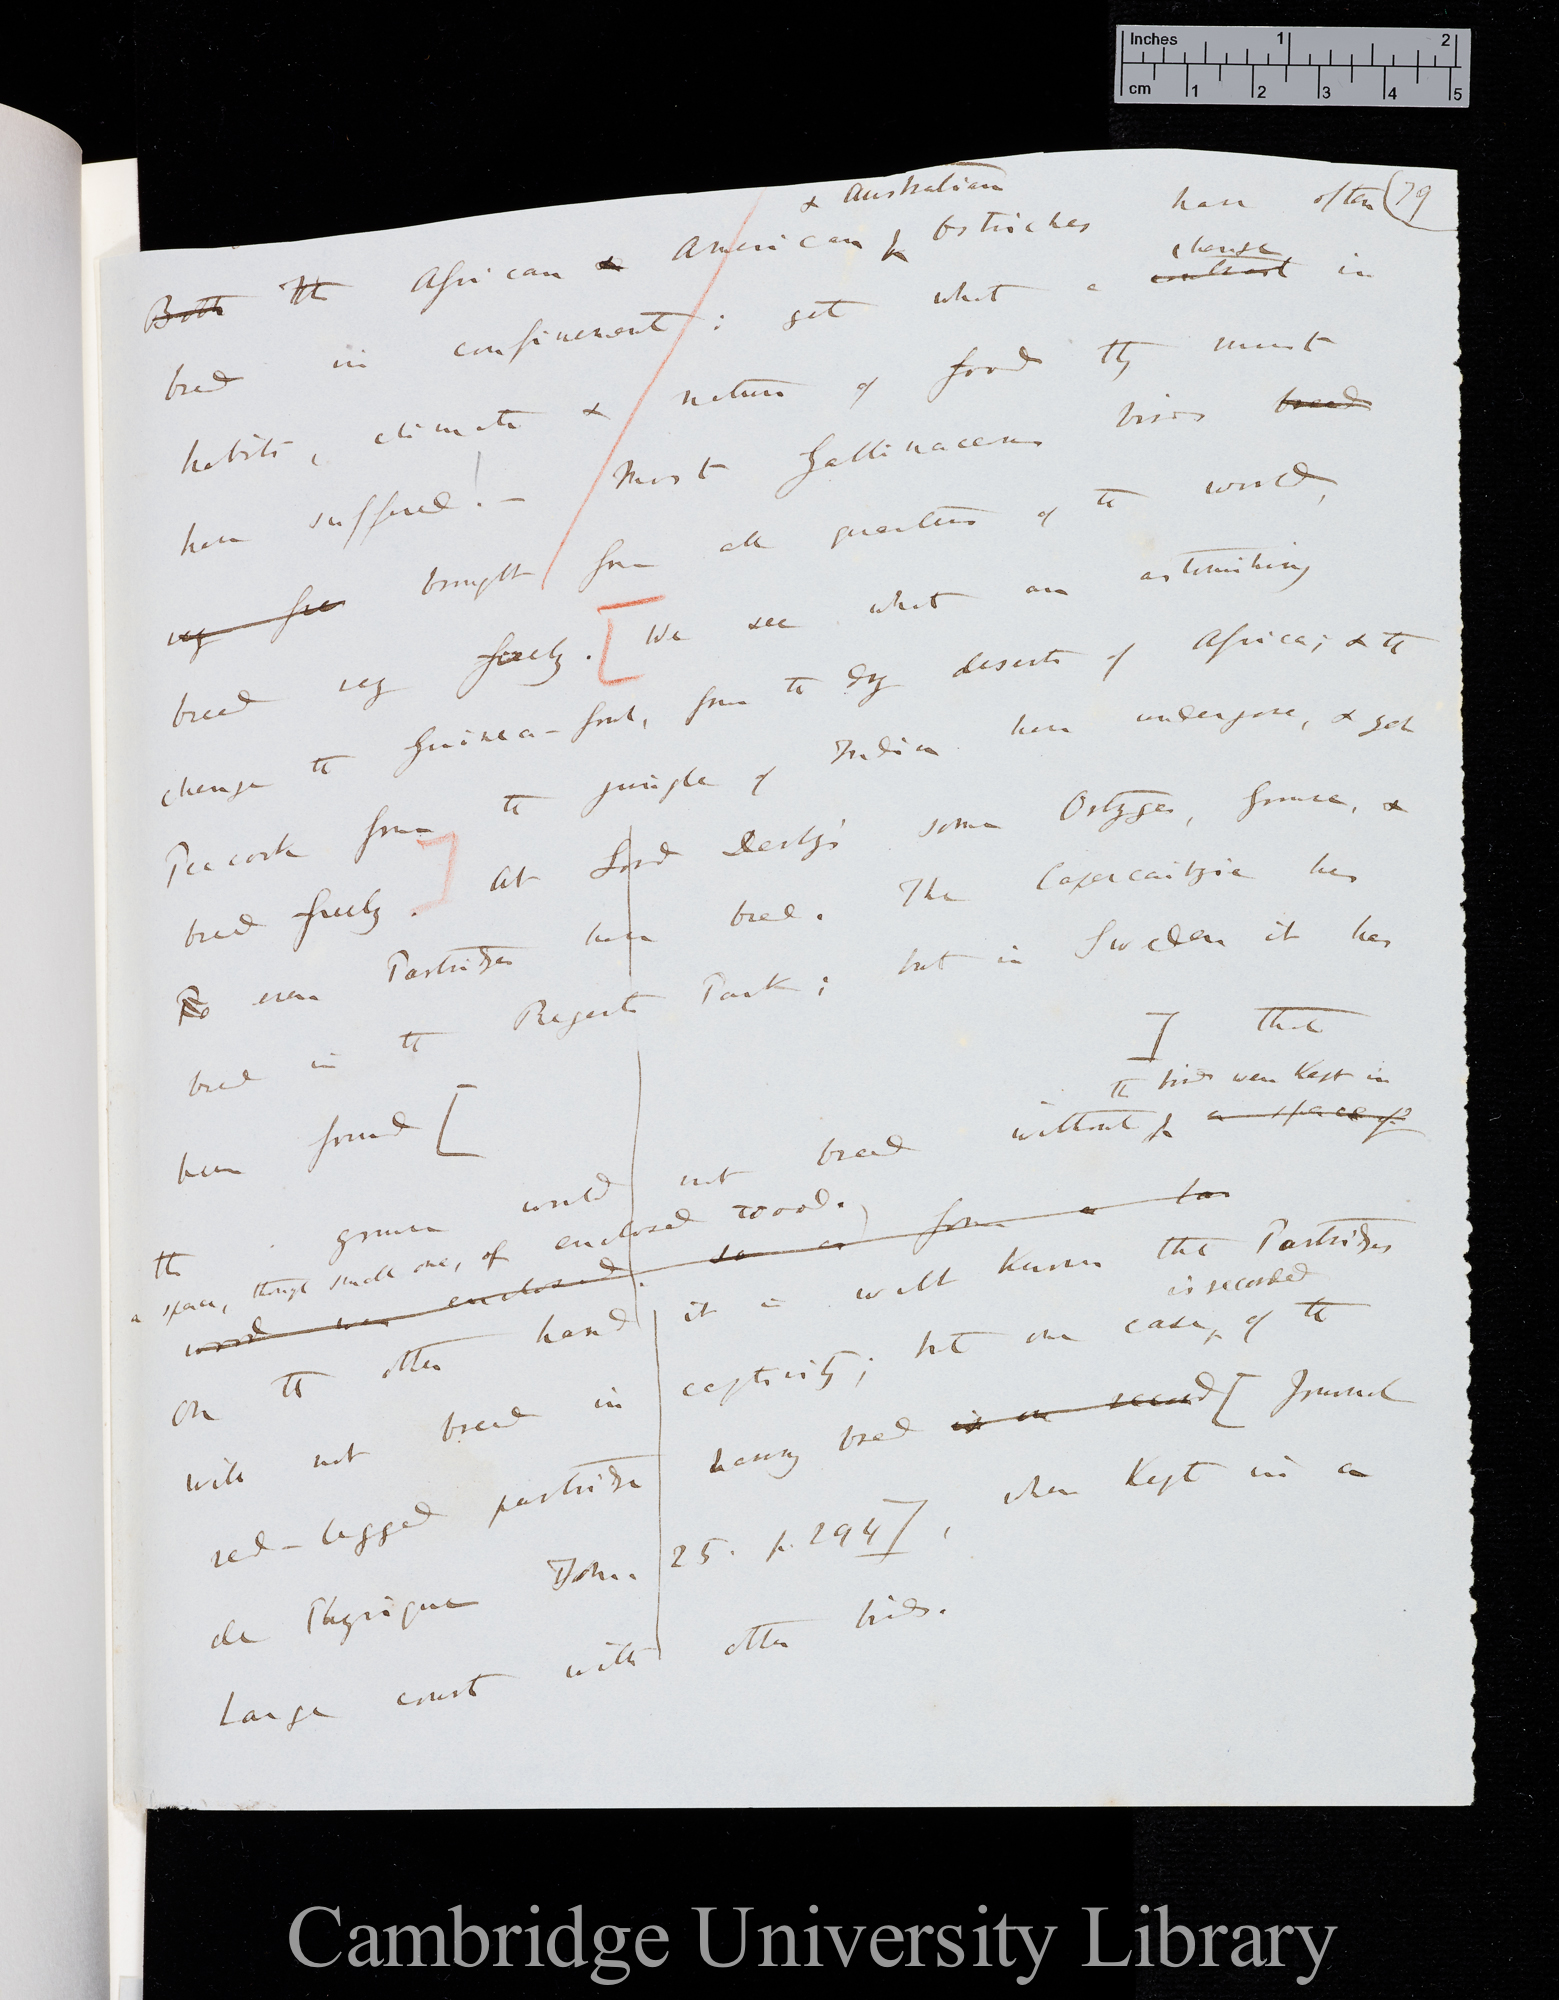 Inches 1 2
cm 1 2 3 4 5
79
& Australian
Both The African & American ^ Ostriches have often
change
bred in confinement; yet what a contrast in
habits, climate & nature of food they must
have suffered! — Most Gallinaceous birds breed
very free brought from all quarters of the world,
breed very freely. [We see what an astonishing
change the Guinea-fowl, from the dry deserts of Africa; & the
Peacock from the jungle of India have undergone, & yet
bred freely.] At Lord Derby's some Ortyges, Grouse, &
even Partridges have bred. The Capercailzie has
bred in the Regents Park; but in Sweden it has
been found [ ] that
the birds were kept in
the grouse would not breed without ^ a space of
a space, though small one, of enclosed wood.
wood was enclosed. so as form a
On the other hand it is well known that Partridges
is recorded
will not breed in captivity; but one case ^ of the
red-legged partridge having bred is on record [Journal
de Physique Tom. 25. p. 294], when kept in a
large court with other birds.
Cambridge University Library